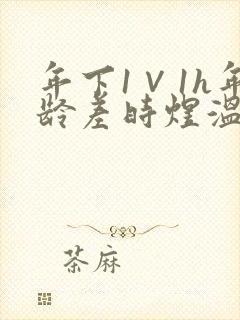 年下1V1h年
龄差时煜温
茶麻